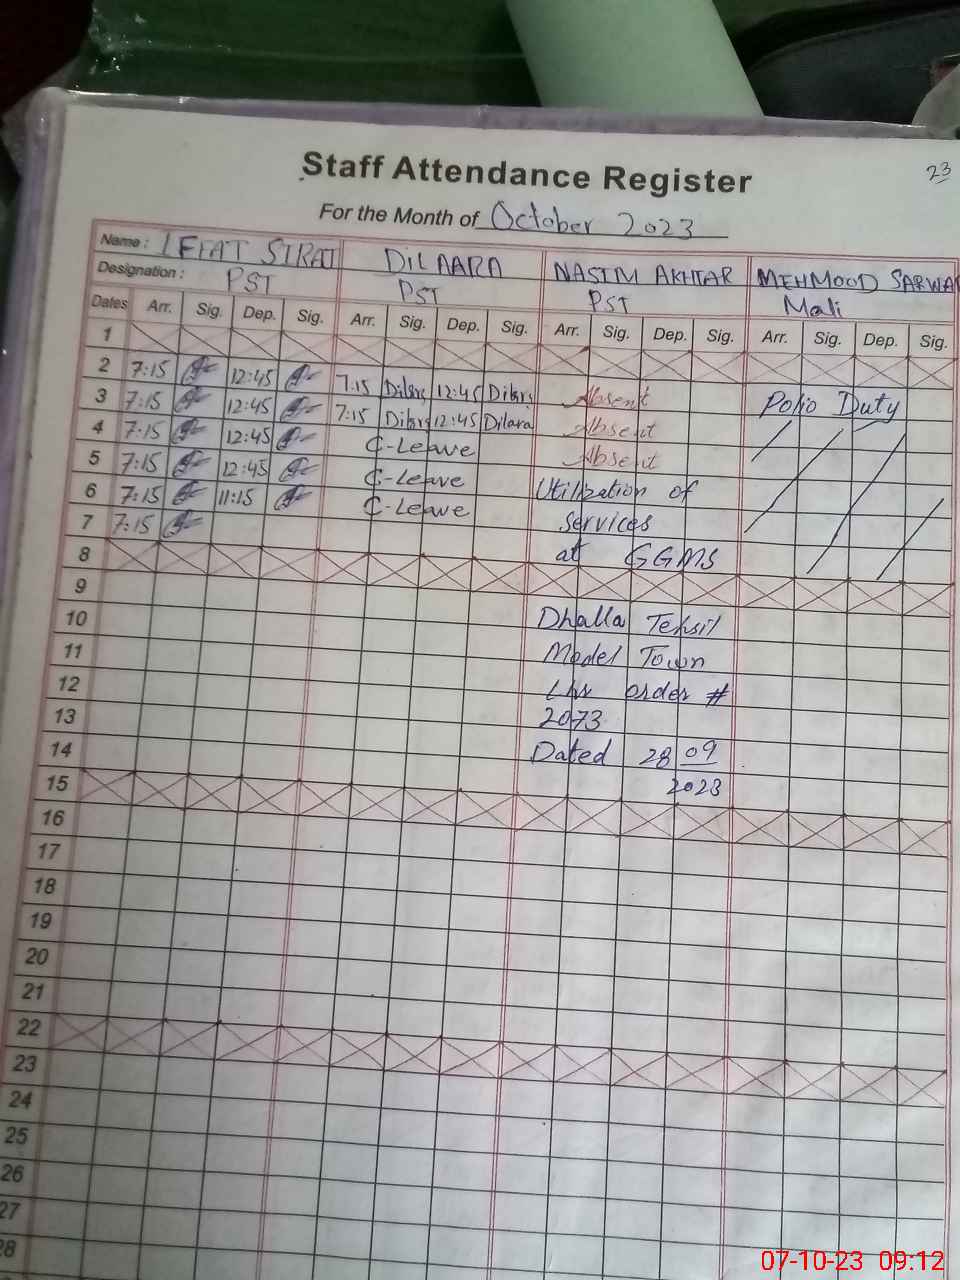 23
Staff Attendance Register
For the Month of October 2023
Name : IFFAT SIRAJ DILAARA NASIM AKHTAR MEHMOOD SARWAR
Designation : PST PST PST Mali
Dates Arr. Sig. Dep. Sig. Arr. Sig. Dep. Sig. Arr. Sig. Dep. Sig. Arr. Sig. Dep. Sig.
1
2 7:15 12:45 7:15 Dilara 12:45 Dilara Absent Polio Duty
3 7:15 12:45 7:15 Dilara 12:45 Dilara Absent
4 7:15 12:45 C-Leave Absent
5 7:15 12:45 C-Leave Utilization of
6 7:15 11:15 C-Leave services
7 7:15 at GGMS
8
9 Dhalla Tehsil
10 Model Town
11 Lhr order #
12 2073
13 Dated 28 09
14 2023
15
16
17
18
19
20
21
22
23
24
25
26
27
28
07-10-23 09:12